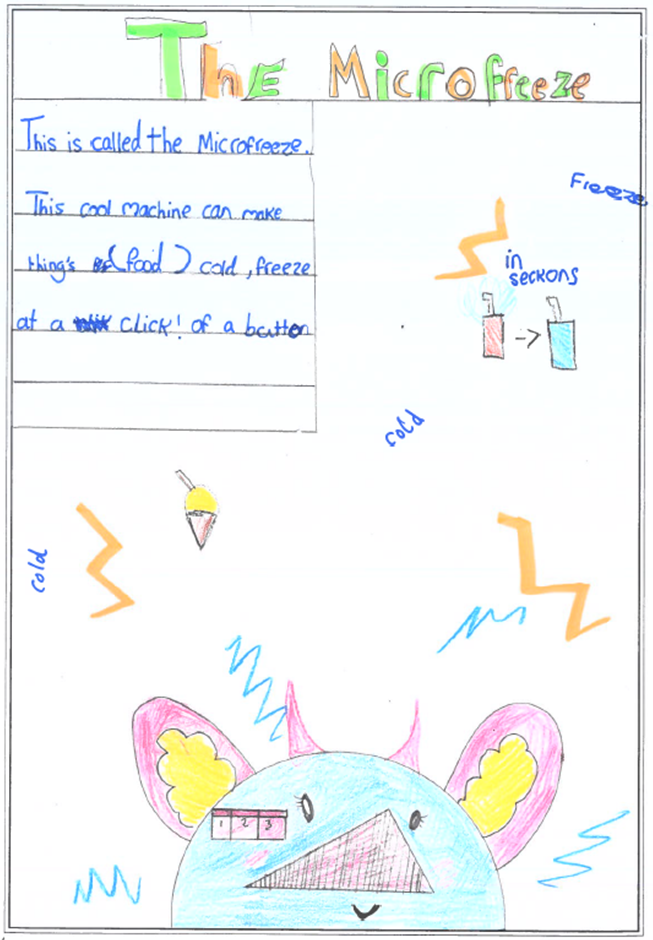 The Microfreeze
This is called the Microfreeze.
This cool machine can make
thing's (food) cold, freeze
at a click! of a button
Freeze
in
seckons
cold
cold
1 2 3